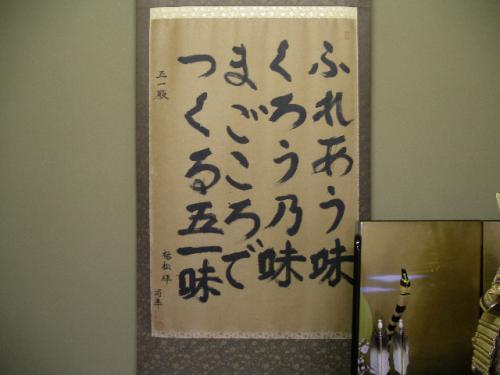 ふれあう味
くろう乃味
まごころで
つくる五一味
五一殿